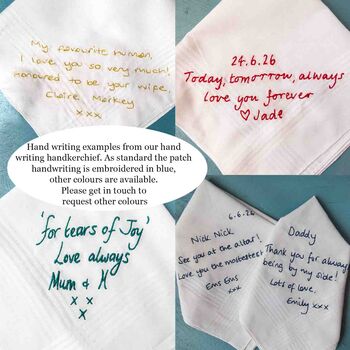 My favourite human,
I love you so very much!
Honoured to be your wife,
Claire Markey
xxx
24.6.26
Today, tomorrow, always
love you forever
♡ Jade
Hand writing examples from our hand
writing handkerchief. As standard the patch
handwriting is embroidered in blue,
other colours are available.
Please get in touch to
request other colours
'for tears of Joy'
Love always
Mum & H
x x
x
6.6.26
Nick Nick
See you at the altar!
Love you the mostestest
Ems Ems
xxx
Daddy
Thank you for always
being by my side!
Lots of love,
Emily xxx